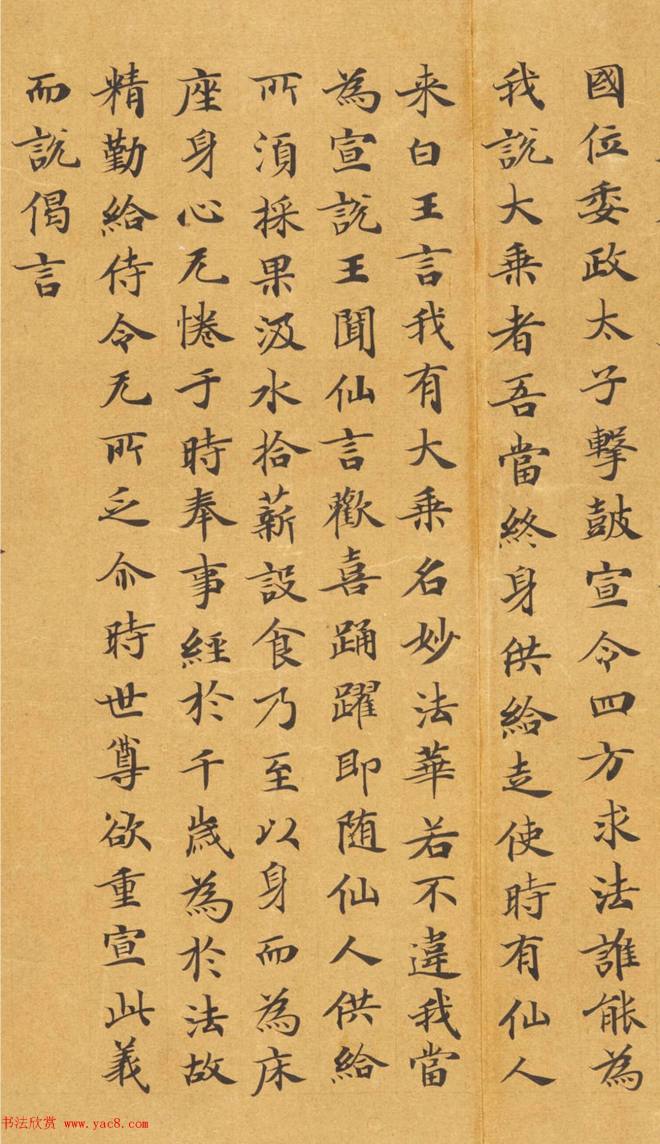 國位委政太子擊鼓宣令四方求法誰能為
我說大乗者吾當終身供給走使時有仙人
来白王言我有大乗名妙法華若不違我當
為宣說王聞仙言歡喜踊躍即随仙人供給
所湏採果汲水拾薪設食乃至以身而為床
座身心无惓于時奉事經於千歳為於法故
精勤給侍令无所乏尒時世尊欲重宣此義
而說偈言
书法欣赏 www.yac8.com